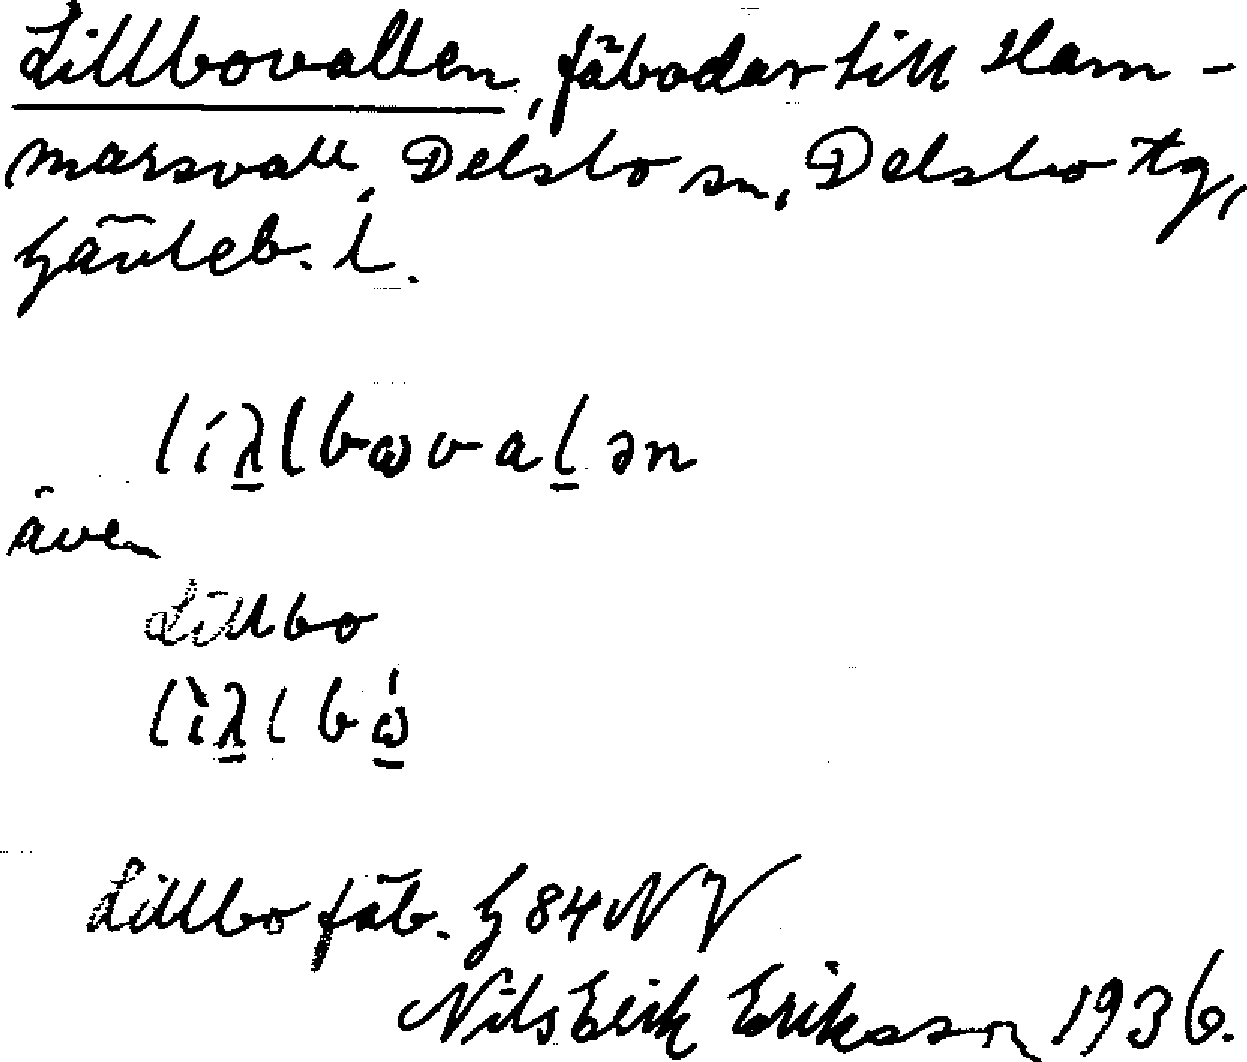 Lillbovallen, fäbodar till Ham-
marsvall, Delsbo sn, Delsbo tg,
Gävleb. l.
líλ̲lbωval̲ən
även
Lillbo
lìλ̲lbώ̲
Lillbo fäb. G 84 NV
Nils Erik Eriksson 1936.